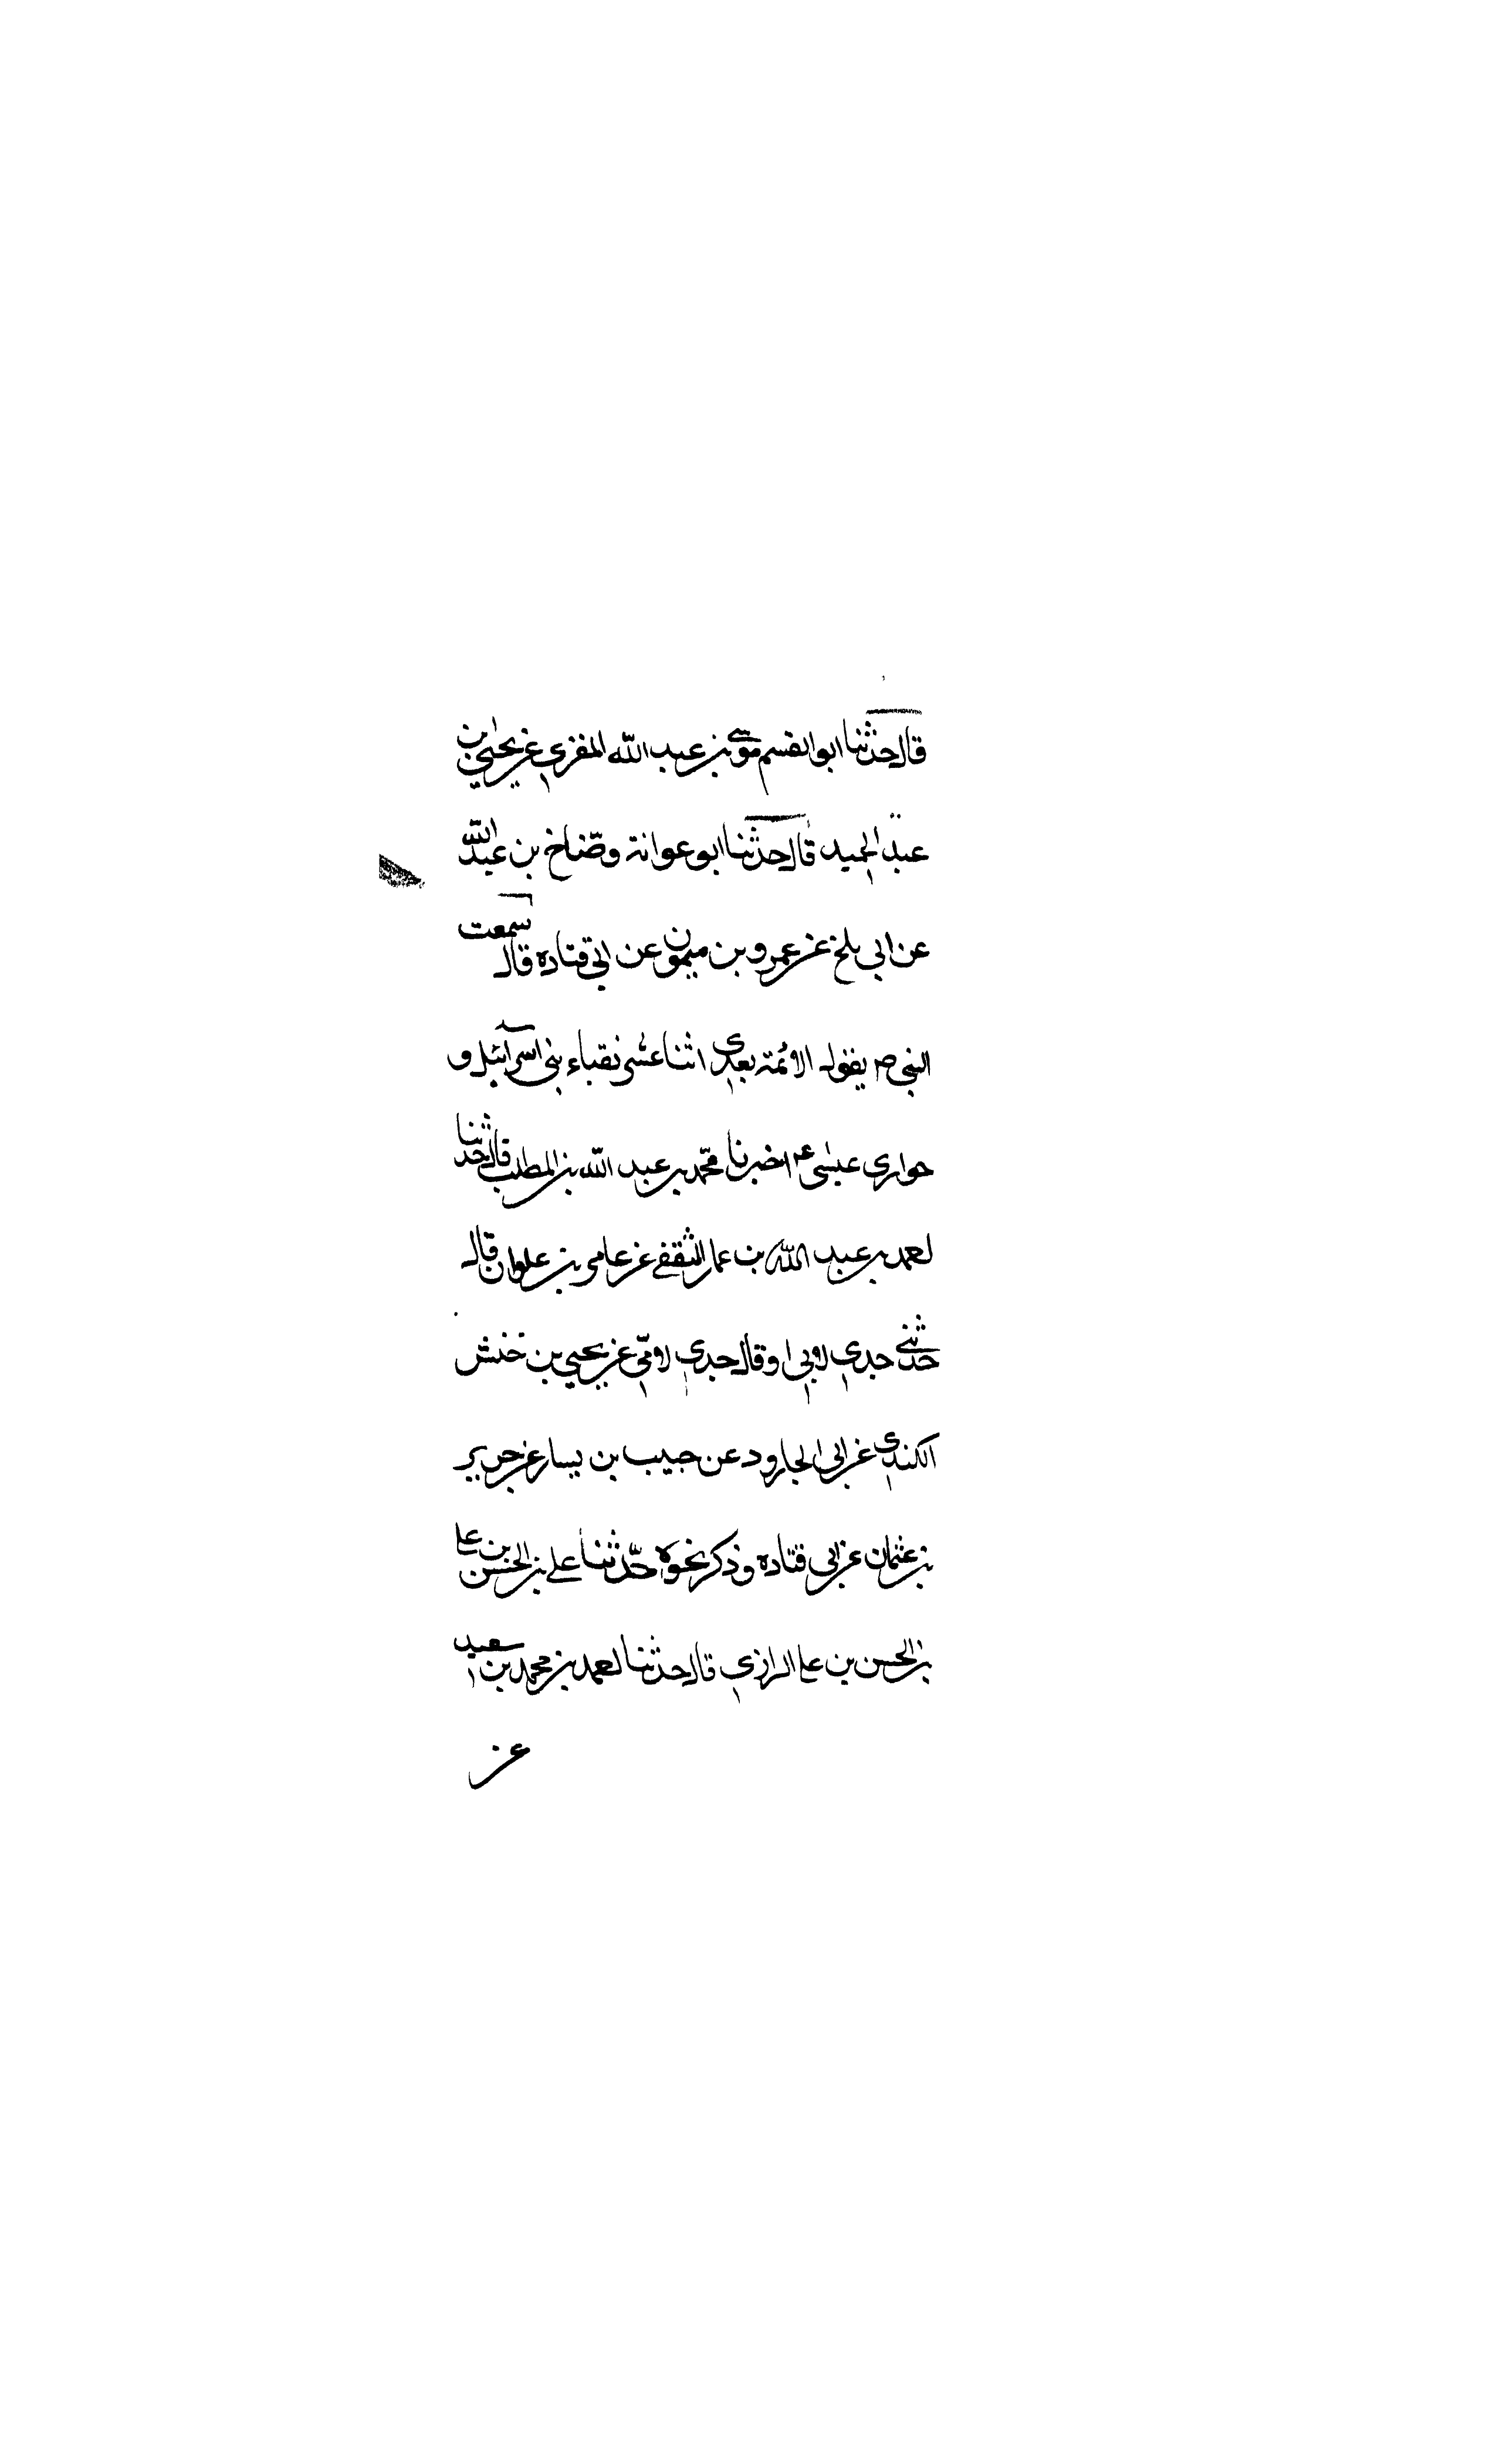 قال حدثنا ابو القسم موسى بن عبد الله المقري عن يحيى بن
عبد الحميد قال حدثنا ابو عوانة وضاخ بن عبد الله
عن ابي بلخ عن عمرو بن ميمون عن ابي قتاده قال سمعت
النبي ص يقول الائمة بعدي اثنا عشر نقباء بني اسرآئيل و
حواري عيسى ع اخبرنا محمد بن عبد الله بن المطلب قال حدثنا
احمد بن عبد الله بن عمار الثقفي عن عامر بن علوان قال
حدثني جدي لابي او قال جدي لامي عن يحيى بن خنش
الكندي عن ابي الجارود عن حبيب بن يسار عن جرير
بن عثمان عن ابي قتاده وذكر نحوه حدثنا علي بن الحسن بن علي
بن الحسن بن علي الرازي قال حدثنا احمد بن محمد بن سعيد
عن